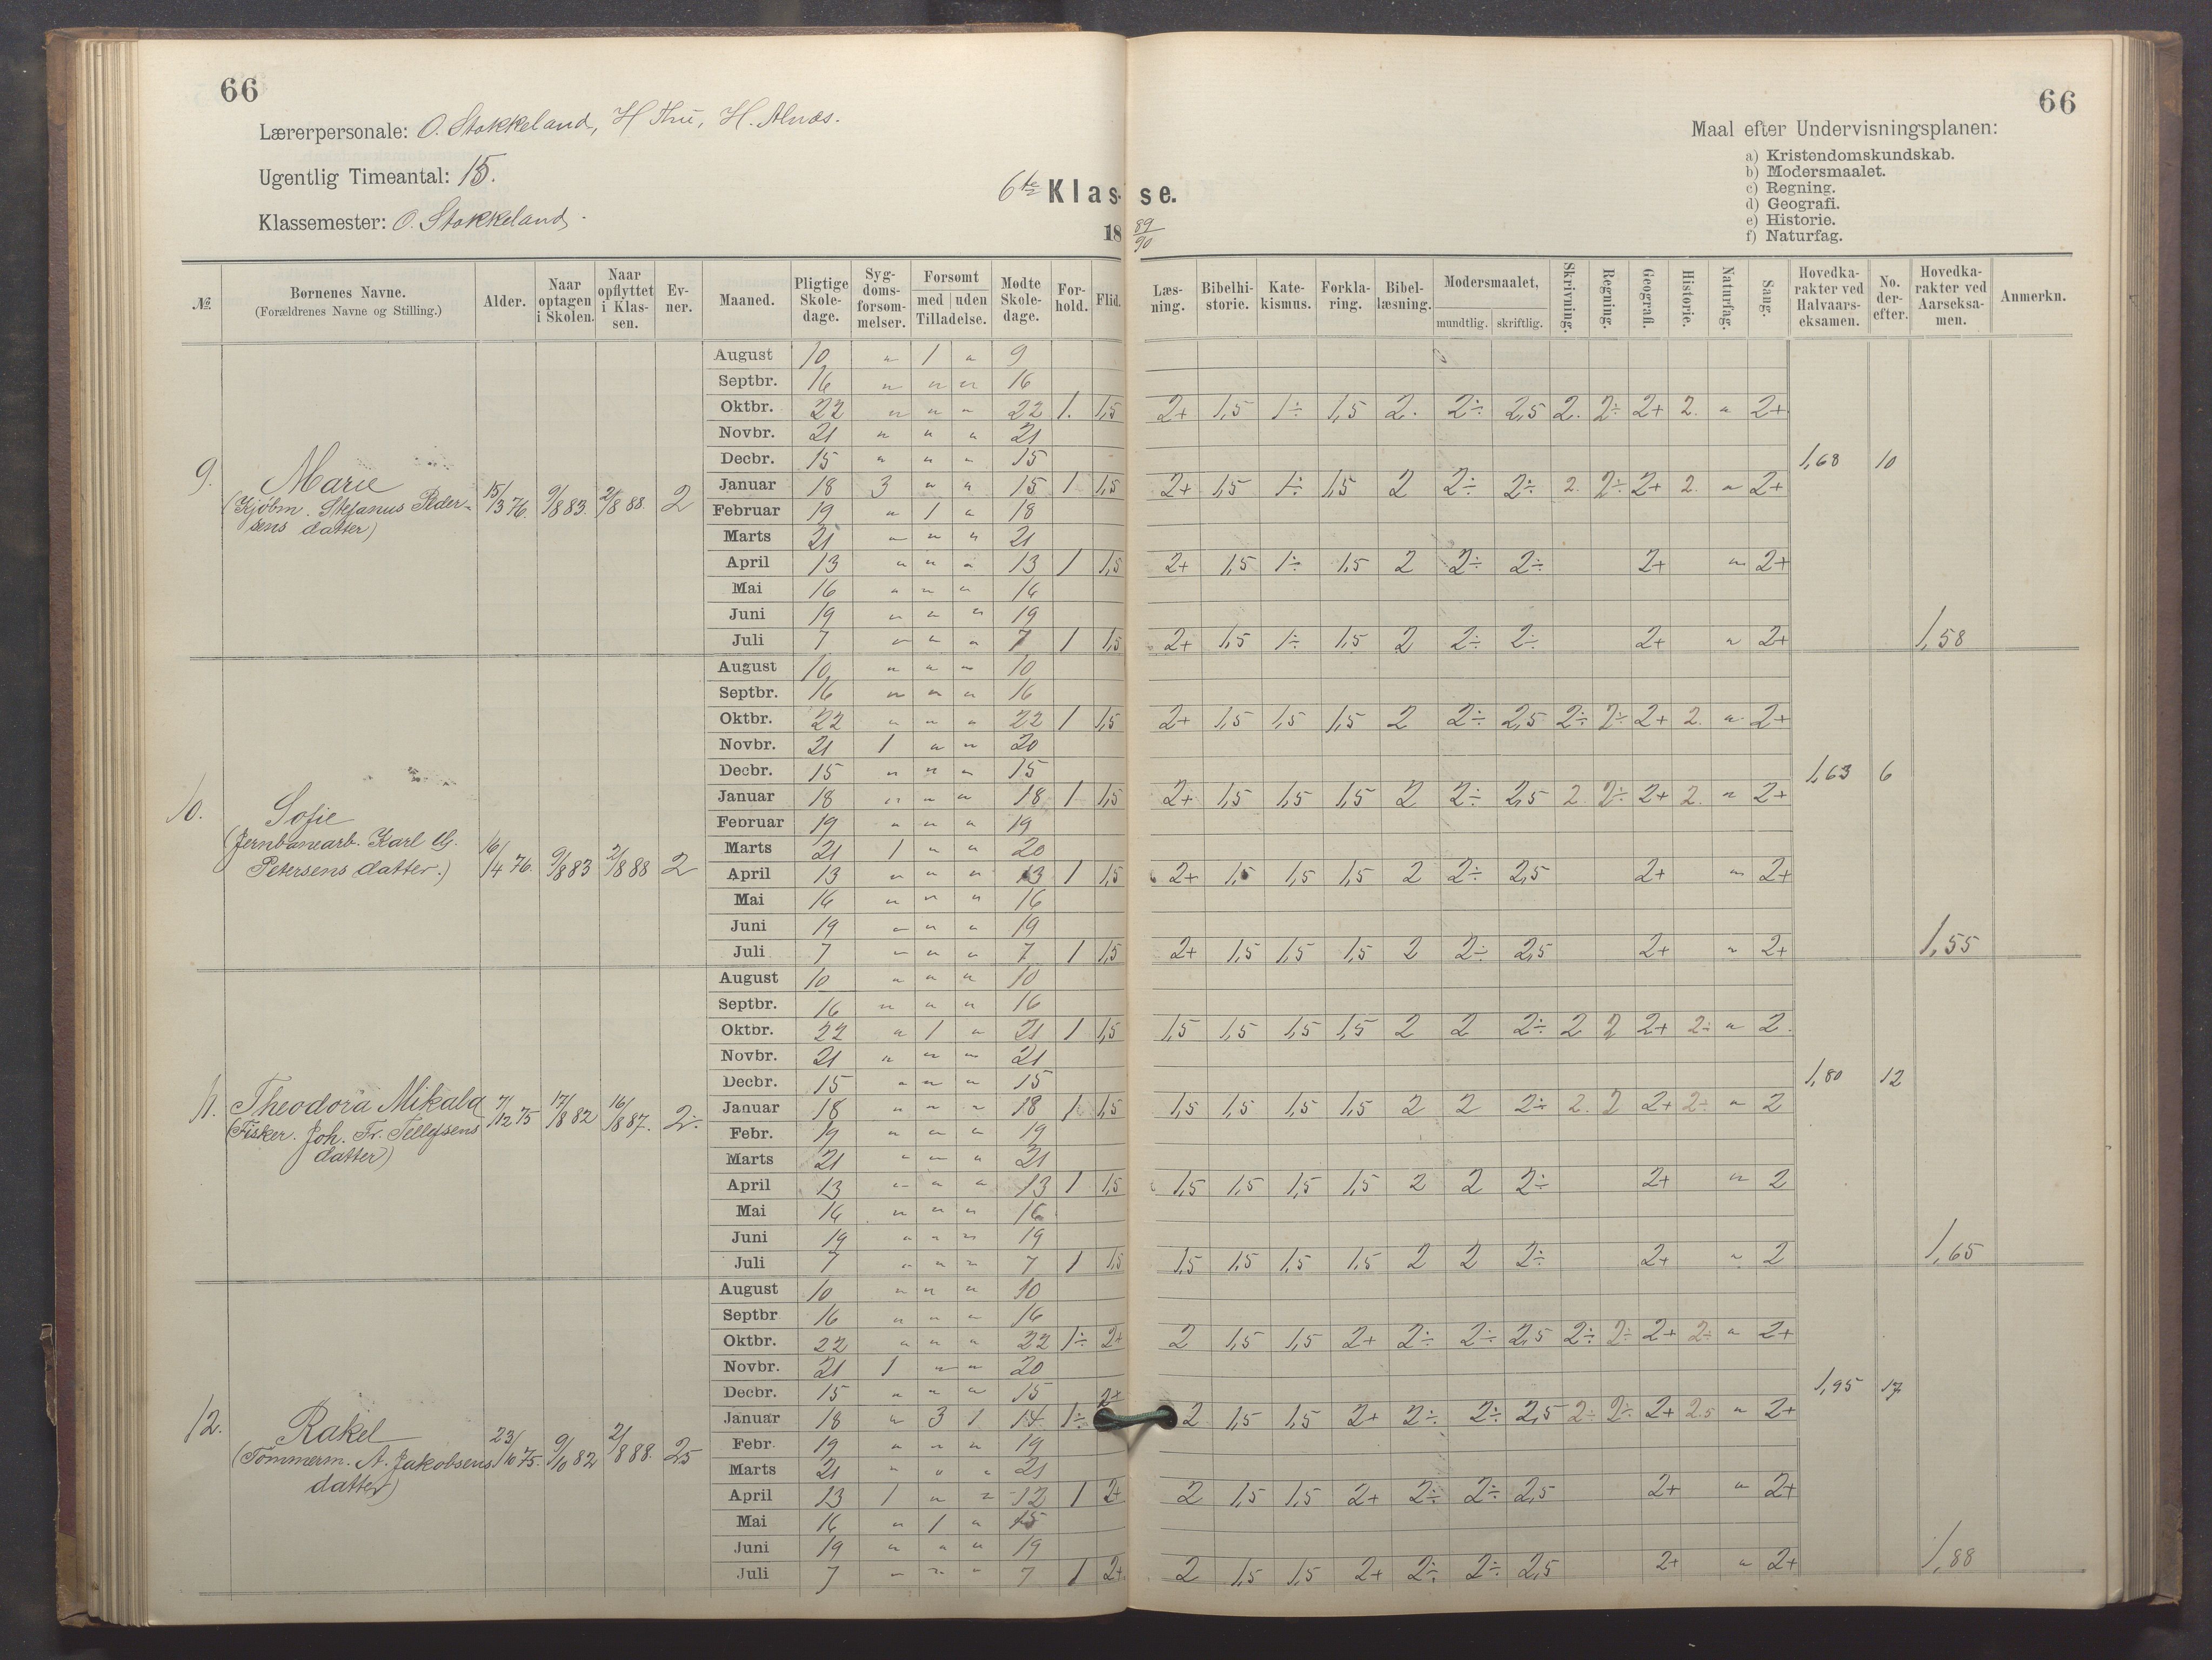 66
66
Lærerpersonale: O. Stokkeland, H Thu, H. Alnæs.
Maal efter Undervisningsplanen:
a) Kristendomskundskab.
b) Modersmaalet.
c) Regning.
d) Geografi.
e) Historie.
f) Naturfag.
Ugentlig Timeantal: 15.
Klassemester: O. Stokkeland.
6te Klasse.
18 89/90
№ Børnenes Navne. (Forældrenes Navne og Stilling.) Alder. Naar optagen i Skolen. Naar opflyttet i Klassen. Evner. Maaned. Pligtige Skoledage. Sygdomsforsømmelser. Forsømt med uden Tilladelse. Mødte Skoledage. Forhold. Flid. Læsning. Bibelhistorie. Katekismus. Forklaring. Bibellæsning. Modersmaalet, mundtlig. skriftlig. Skrivning. Regning. Geografi. Historie. Naturfag. Sang. Hovedkarakter ved Halvaarseksamen. No. derefter. Hovedkarakter ved Aarseksamen. Anmerkn.
9. Marie
(Kjøbm. Stefanus Pedersens datter) 15/3 76. 9/8 83. 2/8 88. 2
August 10 " 1 " 9
Septbr. 16 " " " 16
Oktbr. 22 " " " 22 1. 1,5 2+ 1,5 1÷ 1,5 2. 2÷ 2,5 2. 2÷ 2+ 2. " 2+
Novbr. 21 " " " 21
Decbr. 15 " " " 15 1,68 10
Januar 18 3 " " 15 1 1,5 2+ 1,5 1÷ 1,5 2 2÷ 2÷ 2. 2÷ 2+ 2. " 2+
Februar 19 " 1 " 18
Marts 21 " " " 21
April 13 " " " 13 1 1,5 2+ 1,5 1÷ 1,5 2 2÷ 2÷ 2+ " 2+
Mai 16 " " " 16
Juni 19 " " " 19
Juli 7 " " " 7 1 1,5 2+ 1,5 1÷ 1,5 2 2÷ 2÷ 2+ " 2+ 1,58
10. Sofie
(Jernbanearb. Karl G.
Petersens datter.) 16/4 76. 9/8 83 2/8 88 2
August 10 " " " 10
Septbr. 16 " " " 16
Oktbr. 22 " " " 22 1 1,5 2+ 1,5 1,5 1,5 2 2÷ 2,5 2÷ 2÷ 2+ 2. " 2+
Novbr. 21 1 " " 20
Decbr. 15 " " " 15 1,63 6
Januar 18 " " " 18 1 1,5 2+ 1,5 1,5 1,5 2 2÷ 2,5 2. 2÷ 2+ 2. " 2+
Februar 19 " " " 19
Marts 21 1 " " 20
April 13 " " " 13 1 1,5 2+ 1,5 1,5 1,5 2 2÷ 2,5 2+ " 2+
Mai 16 " " " 16
Juni 19 " " " 19
Juli 7 " " " 7 1 1,5 2+ 1,5 1,5 1,5 2 2÷ 2,5 2+ " 2+ 1,55
11. Theodora Mikala
(Fisker. Joh. Fr. Tellefsens
datter) 7/12 75 17/8 82 16/8 87. 2÷
August 10 " " " 10
Septbr. 16 " " " 16
Oktbr. 22 " 1 " 21 1 1,5 1,5 1,5 1,5 1,5 2 2 2÷ 2 2 2+ 2÷ " 2.
Novbr. 21 " " " 21
Decbr. 15 " " " 15 1,80 12
Januar 18 " " " 18 1 1,5 1,5 1,5 1,5 1,5 2 2 2÷ 2. 2 2+ 2÷ " 2
Febr. 19 " " " 19
Marts 21 " " " 21
April 13 " " " 13 1 1,5 1,5 1,5 1,5 1,5 2 2 2÷ 2+ " 2
Mai 16 " " " 16
Juni 19 " " " 19
Juli 7 " " " 7 1 1,5 1,5 1,5 1,5 1,5 2 2 2÷ 2+ " 2 1,65
12. Rakel
(Tømmerm. A. Jakobsens
datter) 23/10 75. 9/10 82 2/8 88. 2,5
August 10 " " " 10
Septbr 16 " " " 16
Oktbr. 22 " " " 22 1÷ 2+ 2 1,5 1,5 2+ 2÷ 2÷ 2,5 2÷ 2÷ 2+ 2÷ " 2+
Novbr. 21 1 " " 20
Decbr. 15 " " " 15 1,95 17
Januar 18 " 3 1 14 1÷ 2+ 2 1,5 1,5 2+ 2÷ 2÷ 2,5 2÷ 2÷ 2+ 2,5 " 2+
Febr. 19 " " " 19
Marts 21 " " " 21
April 13 1 " " 12 1 2+ 2 1,5 1,5 2+ 2÷ 2÷ 2,5 2+ " 2+
Mai 16 " 1 " 15
Juni 19 " " " 19
Juli 7 " " " 7 1 2+ 2 1,5 1,5 2+ 2÷ 2÷ 2,5 2+ " 2+ 1,88